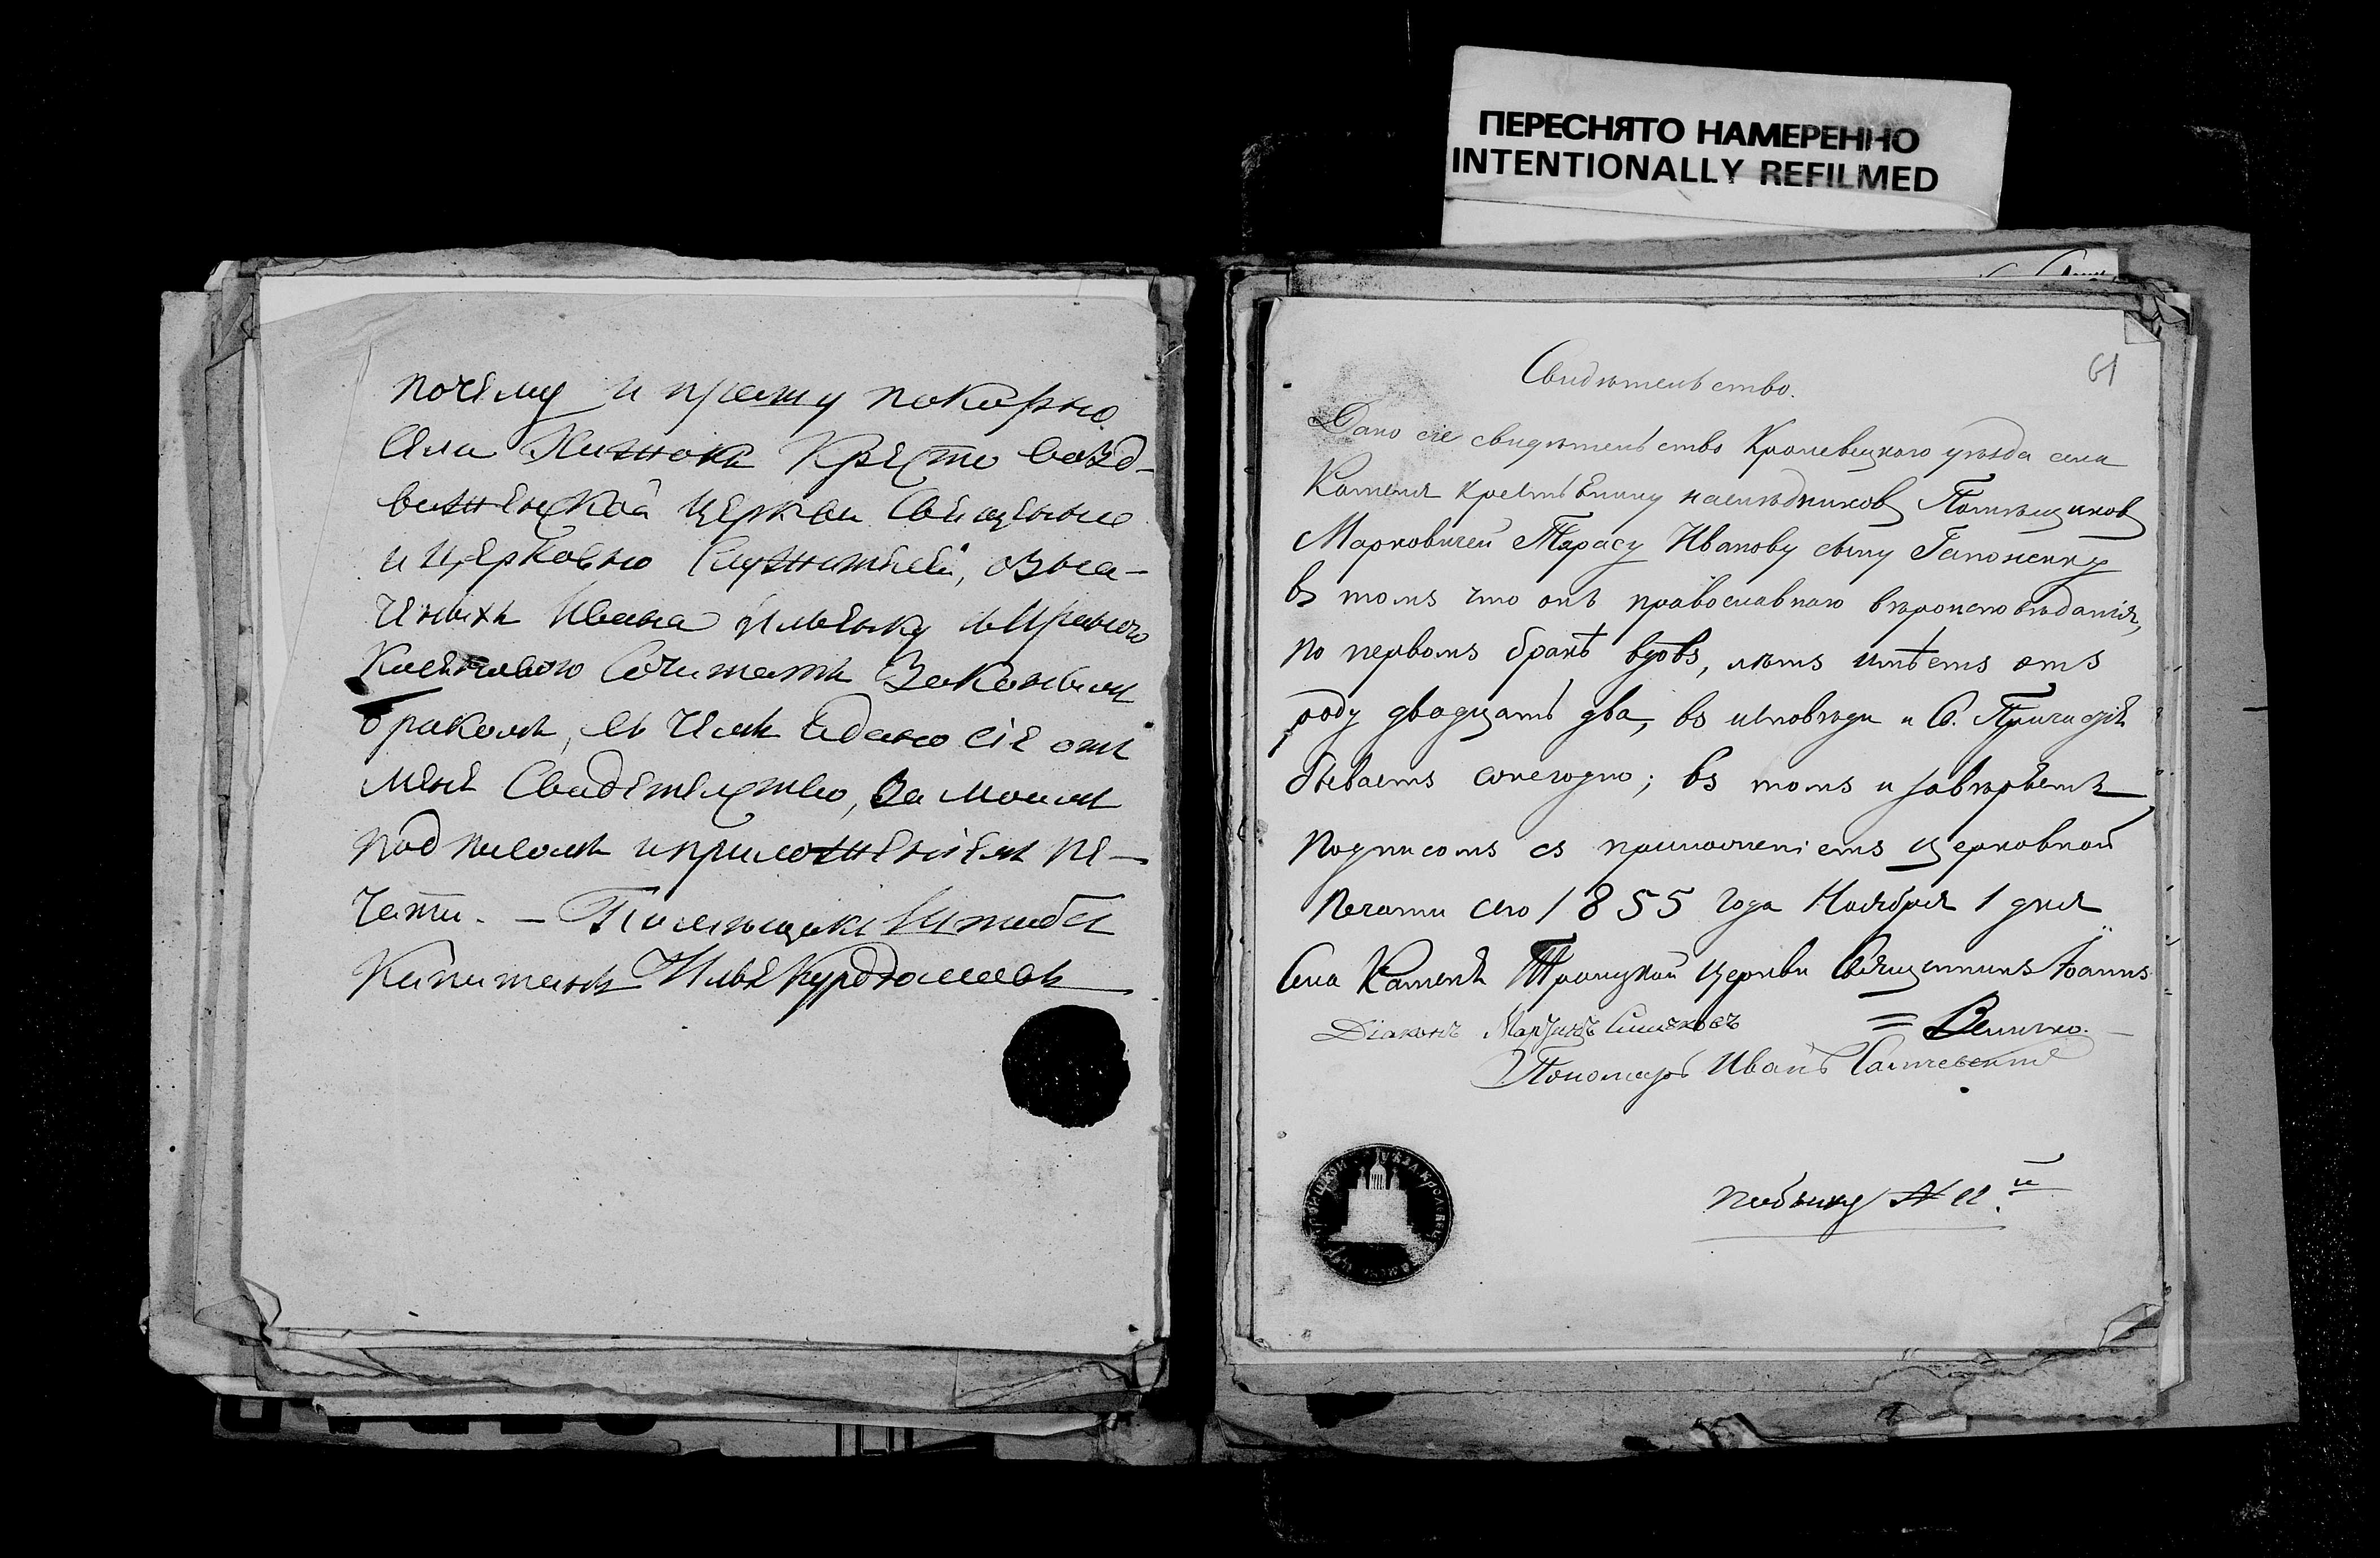 ПЕРЕСНЯТО НАМЕРЕННО
INTENTIONALLY REFILMED
почему и прошу покорно
села Кресто возд-
виженской церкви Священно
и церковно служителей, озна-
ченыхъ Ивана
сочитать Законнымъ
бракомъ, въ чемъ и дано сіе отъ
мене Свидетелство, за моимъ
под писомъ и приложеніемъ пе-
чати. — Помещикъ Штабсъ
Капитанъ Илья
61
Свидѣтельство.
Дано сіе свидѣтельство Кролевецкого уѣзда села
Каменя крестьянину наслѣдников Помѣщиков
Марковичей Тарасу Иванову сыну Гапоненку
въ томъ что онъ православнаго вѣроисповѣданія,
по первомъ бракѣ вдовъ, лѣтъ имѣетъ отъ
роду двадцать два, въ исповѣди и С. Причастія
бываетъ сонегодно; въ томъ и завѣряемъ
подписомъ съ приложеніемъ церковной
печати сего 1855 года Ноября 1 дня
Села Каменя Троицкой церкви Священникъ Іоаннъ
= Величко.
Діаконъ
Пономарь Иванъ
№ 22.й